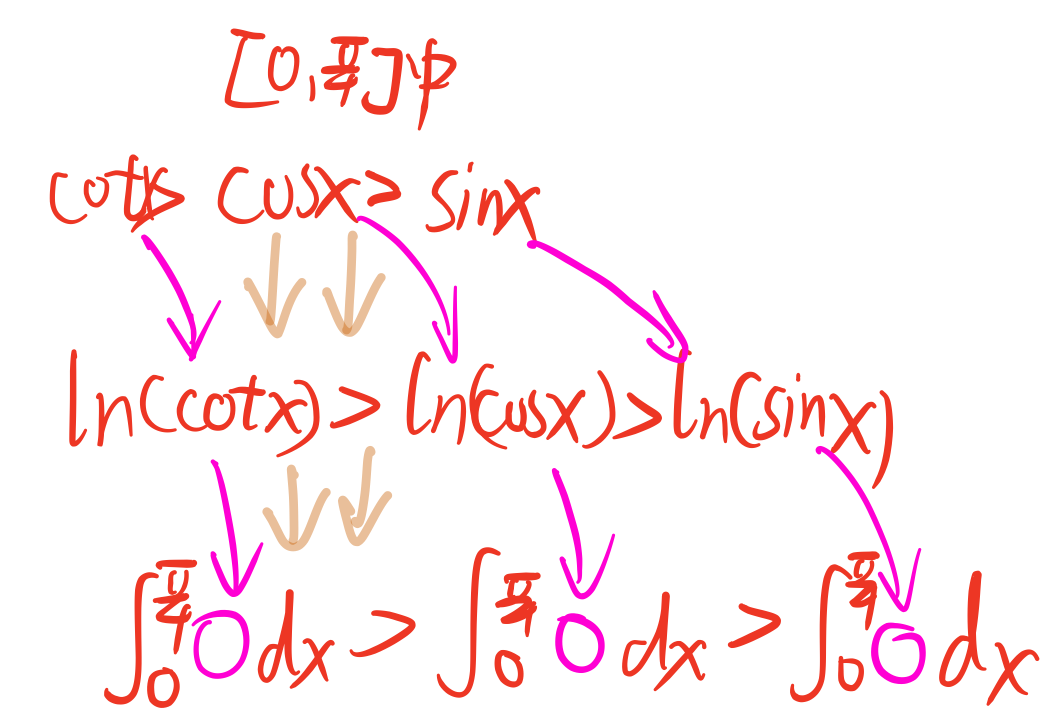 [0, π/4]中
cotx > cosx > sinx
ln(cotx) > ln(cosx) > ln(sinx)
∫₀^(π/4) ○ dx > ∫₀^(π/4) ○ dx > ∫₀^(π/4) ○ dx